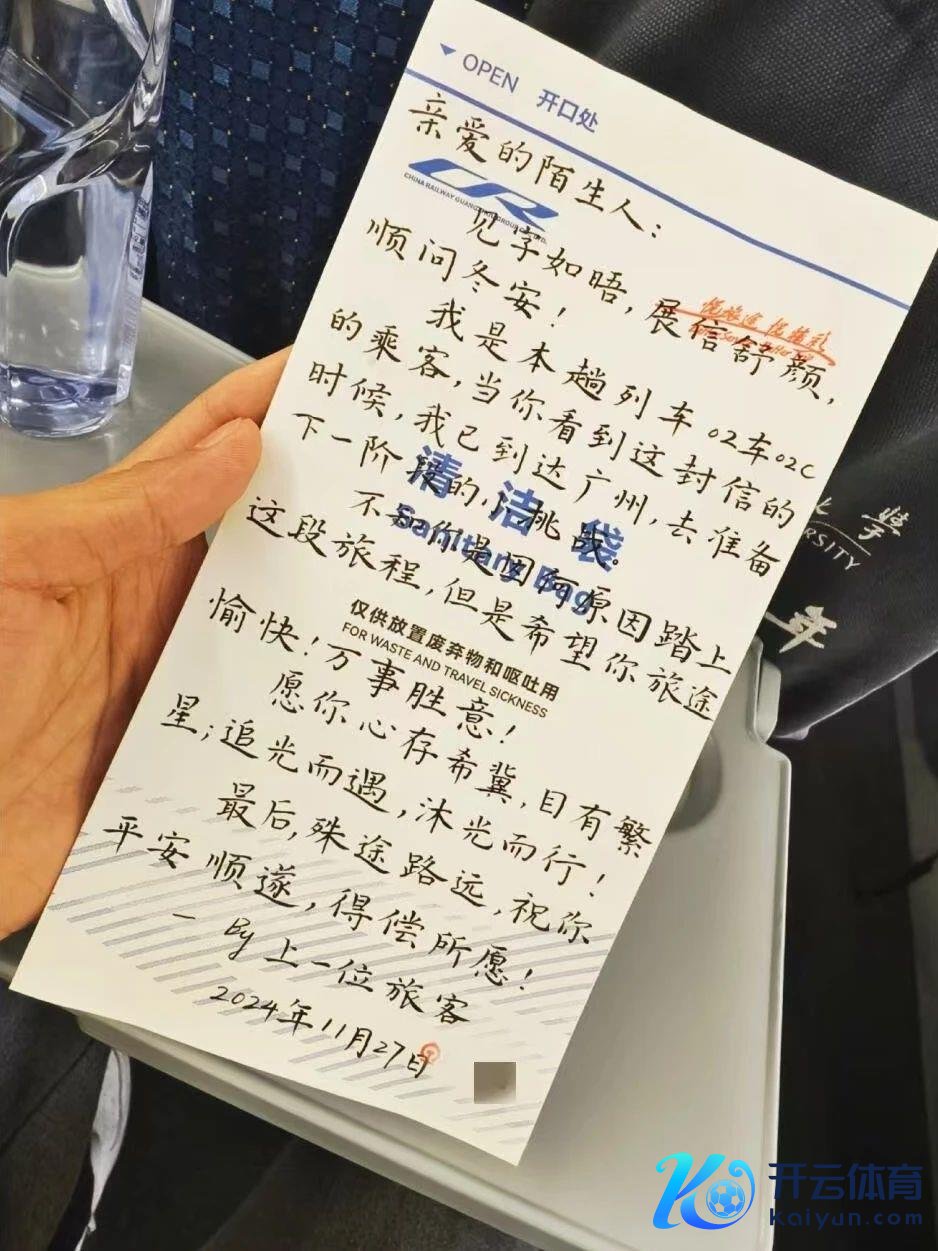 OPEN 开口处
亲爱的陌生人：
CHINA RAILWAY GUANGZHOU GROUP CO., LTD.
见字如晤，展信舒颜，
顺问冬安！
我是本趟列车02车02C
的乘客，当你看到这封信的
时候，我已到达广州，去准备
下一阶段的小挑战。
清洁袋
Sanitary Bag
不知你是因何原因踏上
这段旅程，但是希望你旅途
愉快！万事胜意！
仅供放置废弃物和呕吐用
FOR WASTE AND TRAVEL SICKNESS
愿你心存希冀，目有繁
星；追光而遇，沐光而行！
最后，殊途路远，祝你
平安顺遂，得偿所愿！
— By 上一位旅客
2024年11月27日
大学
ERSITY
开云体育
Kaiyun.com